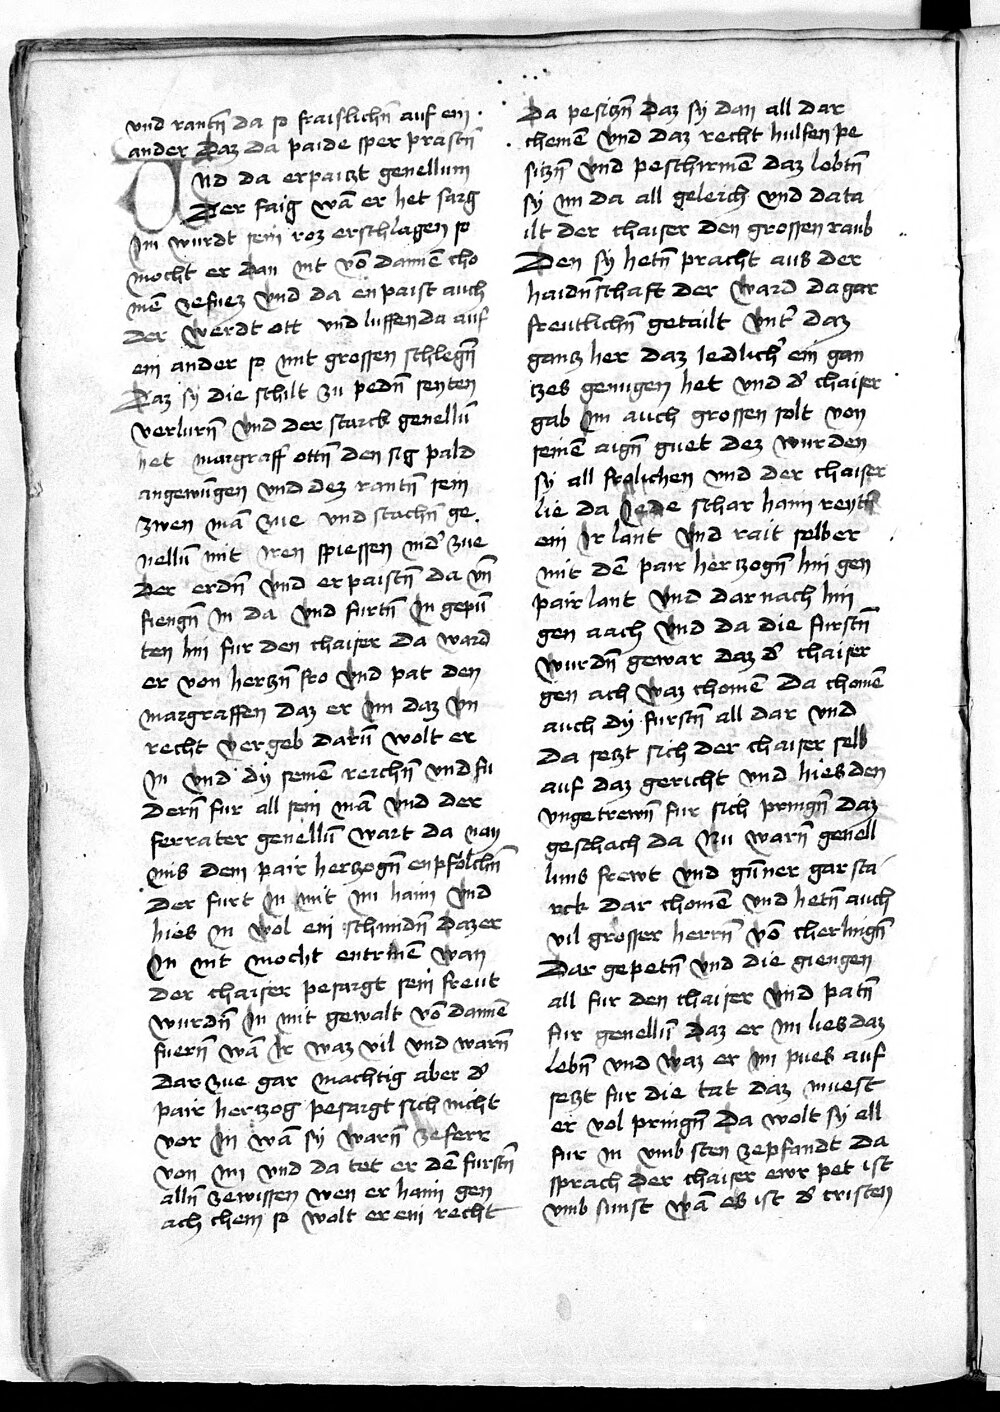 vnd rantn̄ da so fraislichn̄ auf ein
ander Daz da paide sper prastn̄
Und da erpaitzt genellum
Der faig wā er het sarg
Im wurdt sein roz erschlagen so
mocht er dan nit vō dannē cho
mē zefuez vnd da enpaist auch
der werdt ott vnd luffen da auf
ein ander so mit grossen schlegn̄
Daz sy die schilt zu pedn̄ seyten
verlurn̄ vnd der starck genellū
het margraff ottn̄ den sig pald
angewūgen vnd dez rantn̄ sein
zwen mā zue vnd stachn̄ ge
nellū mit iren spiessen nid̄ zue
der erdn̄ vnd erpaistn̄ da vn̄
fiengn̄ In da vnd furtn̄ In gepū
ten hin fur den chaiser da ward
er von hertzn̄ fro vnd pat den
margraffen daz er im daz vn
recht vergeb darū wolt er
In vnd dy seinē reichn̄ vnd fu
dern̄ fur all sein mā vnd der
ferrater genellū wart da nay
mis dem pair hertzogn̄ enpfolchn̄
der furt In mit im haim vnd
hies in wol ein schmidn̄ daz er
In nit mocht entrinē wan
der chaiser pesargt sein freut
wurdn̄ In mit gewalt vō dannē
fuern̄ wā Ir waz vil vnd warn̄
dar zue gar machtig aber d̄
pair hertzog pesargt sich nicht
vor In wā sy warn̄ zeferr
von im vnd da tet er dē furstn̄
alln̄ zewissen wen er haim gen
ach chem so wolt er ein recht
Da pesitzn̄ daz sy dan all dar
chemē vnd daz recht hulfen pe
sitzn̄ vnd peschirmē daz lobtn̄
sy im da all geleich vnd da ta
ilt der chaiser den grossen raub
Den sy hetn̄ pracht aus der
haidn̄schaft der ward da gar
freutlichn̄ getailt vnt̄ daz
gantz her daz iedlich̄ ein gan
tzes genugen het vnd d̄ chaiser
gab im auch grossen solt von
seinē aign̄ guet dez wurden
sy all frolichen vnd der chaiser
lie da iede schar haim reytn̄
ein Ir lant vnd rait selber
mit dē pair hertzogn̄ hin gen
pair lant vnd dar nach hin
gen aach vnd da die furstn̄
wurdn̄ gewar daz d̄ chaiser
gen ach waz chomē Da chomē
auch dy furstn̄ all dar vnd
Da setzt sich der chaiser selb
auf daz gericht vnd hies den
vngetrewn̄ fur sich pringn̄ daz
geschach da Nu warn̄ genell
lums frewt vnd gūner gar sta
rck dar chomen vnd hetn̄ auch
vil grosser herrn̄ vō cherlingn̄
Dar gepetn̄ vnd die giengen
all fur den chaiser vnd patn̄
fur genellū daz er im lies daz
lebn̄ vnd waz er im pues auf
setzt fur die tat daz muest
er vol pringn̄ Da wolt sy all
fur in vmb sten zepfandt da
sprach der chaiser ewr pet ist
vmb sunst wā es ist d̄ cristen